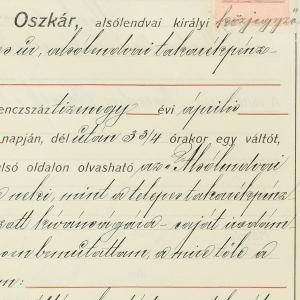 Oszkár, alsólendvai királyi közjegyző
úr, alsólendvai takarékpénz-
enczszáz tizenegy évi április
napján, dél után 3 3/4 órakor egy váltót,
lsó oldalon olvasható az "Alsólendvai
neki, mint a telepes takarékpénz
zott kívánságára - saját irodám
bemutattam, a mire tőle a